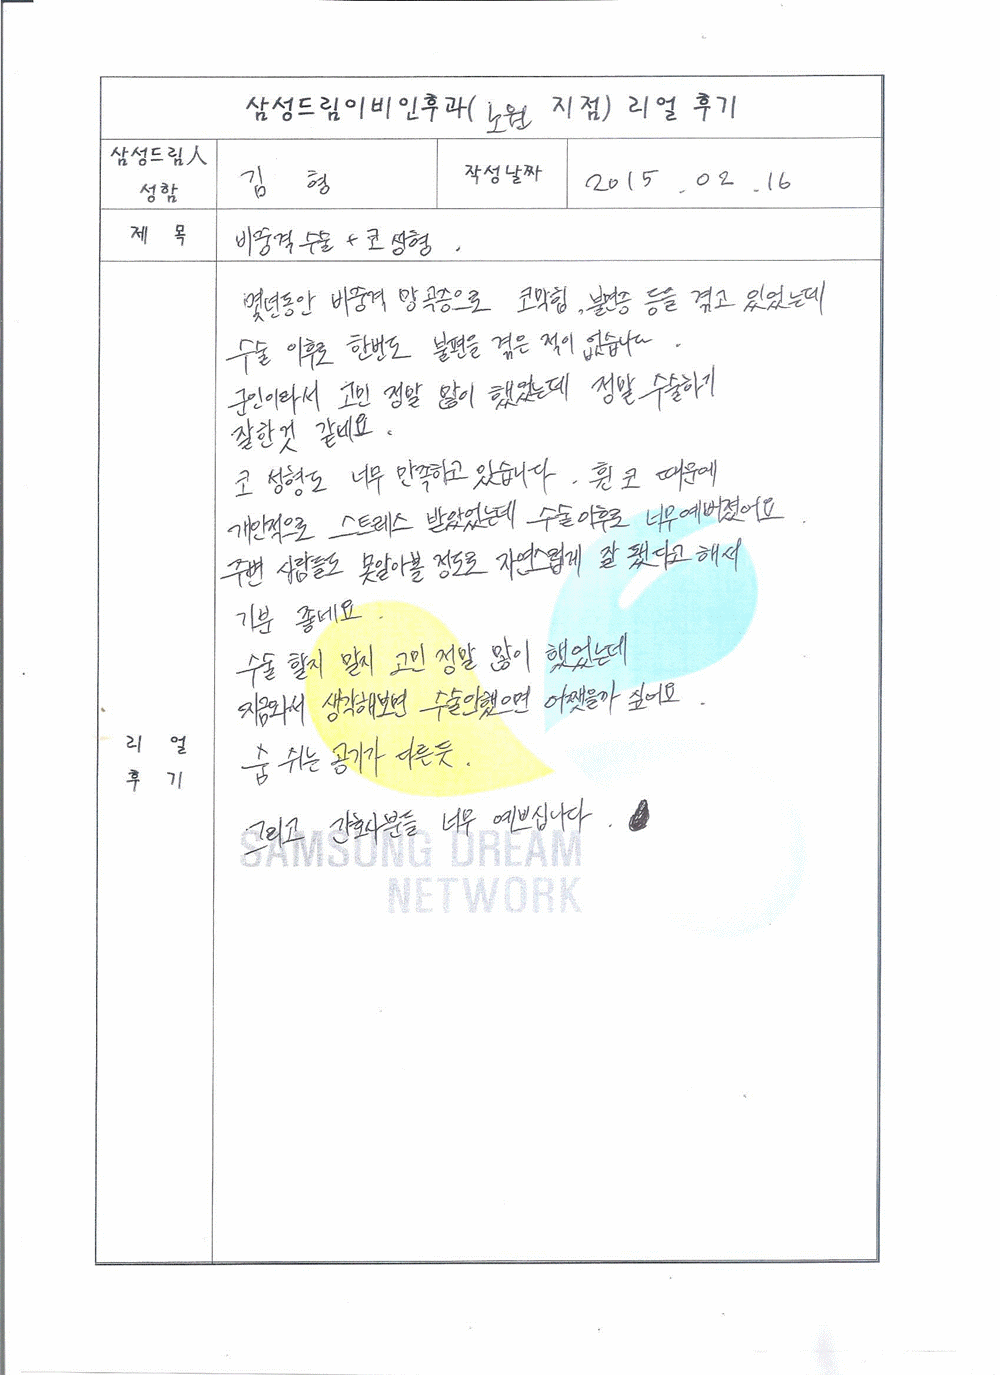 삼성드림이비인후과( 노원 지점) 리얼 후기
삼성드림人 성함
김 형
작성날짜
2015 . 02 . 16
제 목
비중격 수술 + 코 성형 .
리 얼 후 기
몇년동안 비중격 만곡증으로 코막힘, 불편증 등을 겪고 있었는데
수술 이후로 한번도 불편을 겪은 적이 없습니다 .
군인이라서 고민 정말 많이 했었는데 정말 수술하기
잘한것 같네요 .
코 성형도 너무 만족하고 있습니다 . 휜 코 때문에
개인적으로 스트레스 받았었는데 수술이후로 너무예뻐졌어요 .
주변 사람들도 못알아볼 정도로 자연스럽게 잘 됐다고 해서
기분 좋네요 .
수술 할지 말지 고민 정말 많이 했었는데
지금와서 생각해보면 수술안했으면 어쨋을까 싶어요 .
숨 쉬는 공기가 다른듯 .
그리고 간호사분들 너무 예쁘십니다 .
SAMSUNG DREAM
NETWORK